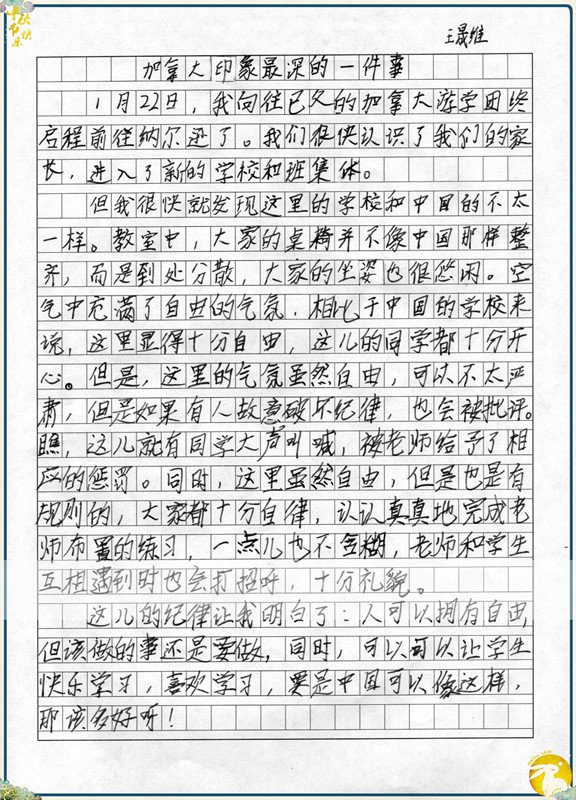 王晟维
加拿大印象最深的一件事
1月22日，我向往已久的加拿大游学团终
启程前往纳尔逊了。我们很快认识了我们的家
长，进入了新的学校和班集体。
但我很快就发现这里的学校和中国的不太
一样。教室中，大家的桌椅并不像中国那样整
齐，而是到处分散，大家的坐姿也很悠闲。空
气中充满了自由的气氛，相比于中国的学校来
说，这里显得十分自由，这儿的同学都十分开
心。但是，这里的气氛虽然自由，可以不太严
肃，但是如果有人故意破坏纪律，也会被批评。
瞧，这儿就有同学大声叫喊，被老师给予了相
应的惩罚。同时，这里虽然自由，但是也是有
规则的，大家都十分自律，认认真真地完成老
师布置的练习，一点儿也不含糊，老师和学生
互相遇到时也会打招呼，十分礼貌。
这儿的纪律让我明白了：人可以拥有自由，
但该做的事还是要做，同时，可以可以让学生
快乐学习，喜欢学习，要是中国可以像这样，
那该多好呀！